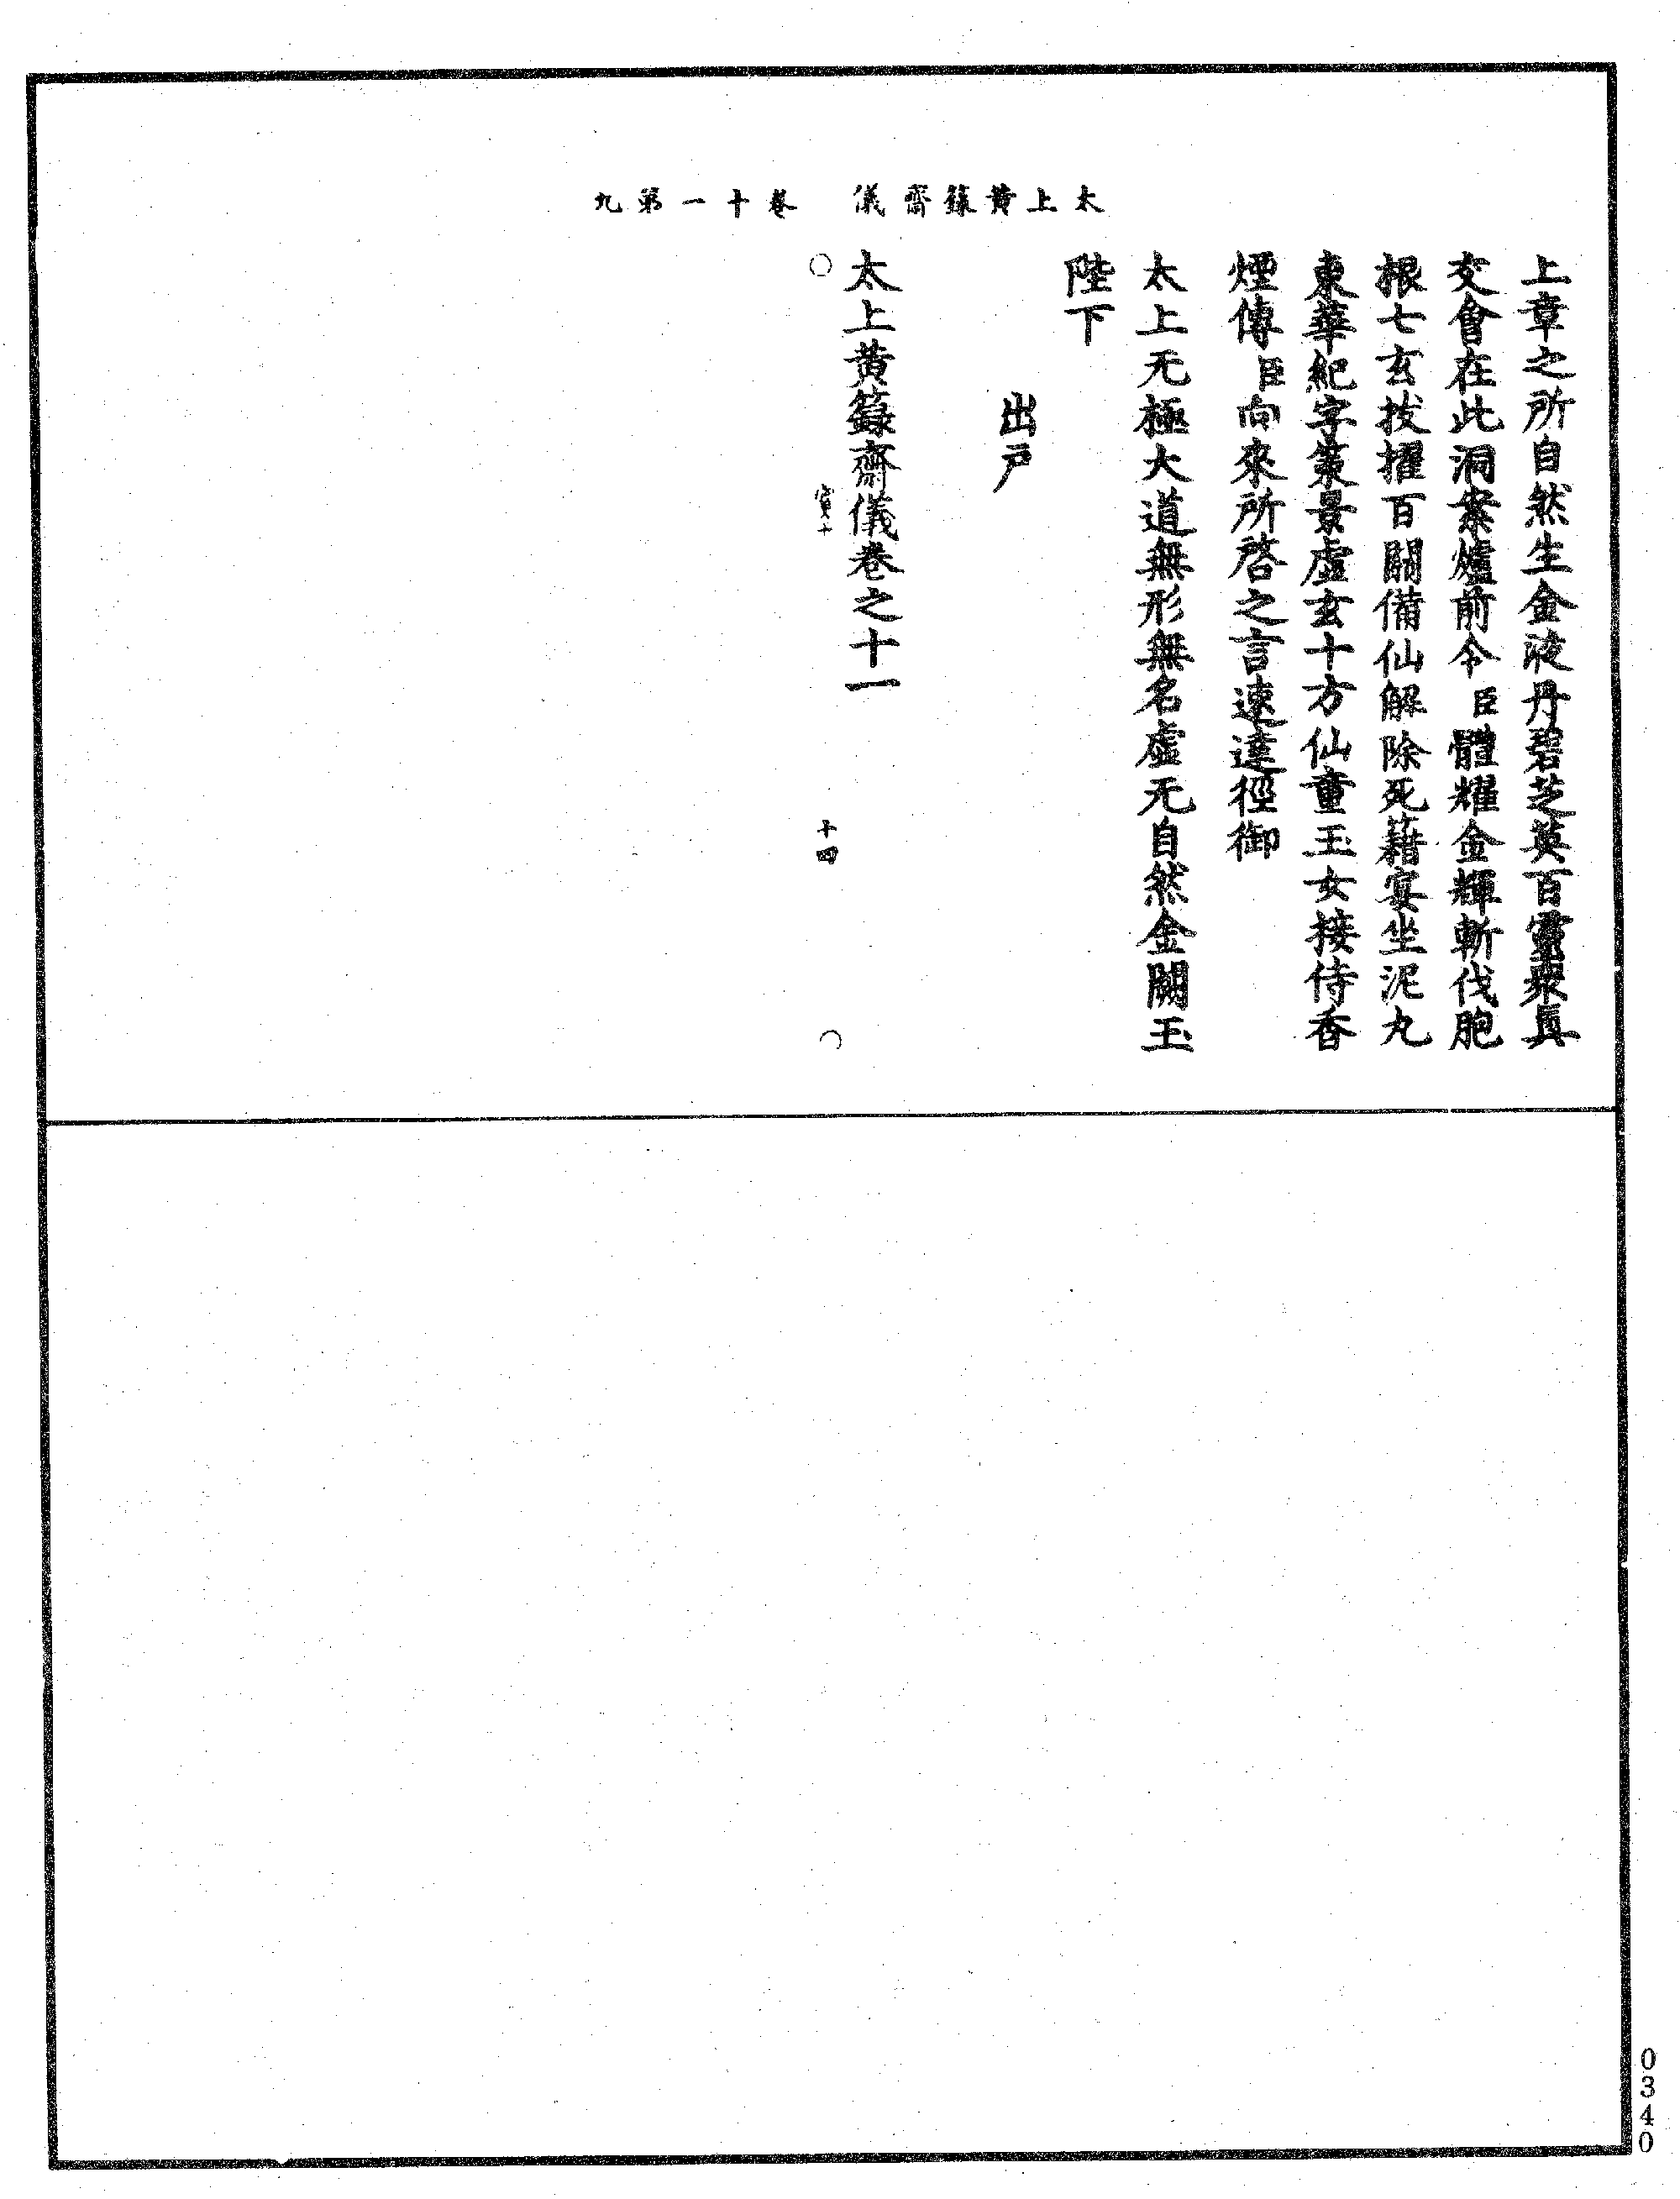 太上黃籙齋儀　卷十一第九
上章之所自然生金液丹碧芝英百靈衆眞
交會在此洞案爐前令臣體耀金輝斬伐胞
根七玄拔擢百關備仙解除死籍宴坐泥丸
東華紀字策景虛玄十方仙童玉女接侍香
煙傳臣向來所啓之言速達徑御
太上无極大道無形無名虛无自然金闕玉
陛下
出戶
太上黃籙齋儀卷之十一
十四
0340